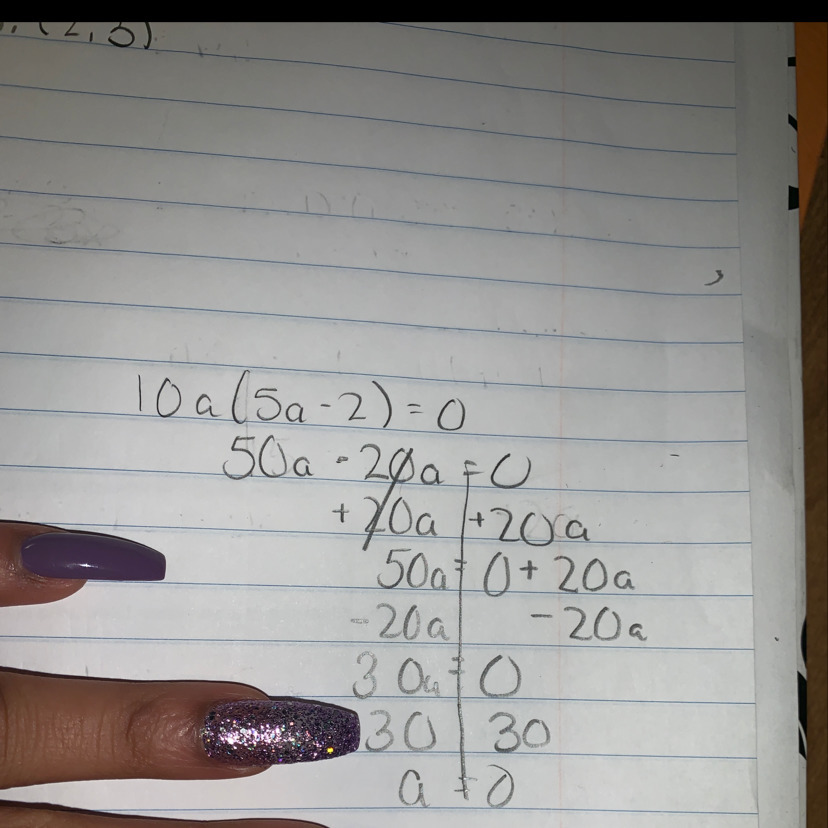 (2, 5)
10a(5a - 2) = 0
50a - 20a = 0
+ 20a +20a
50a = 0 + 20a
-20a - 20a
30a = 0
30 30
a = 0